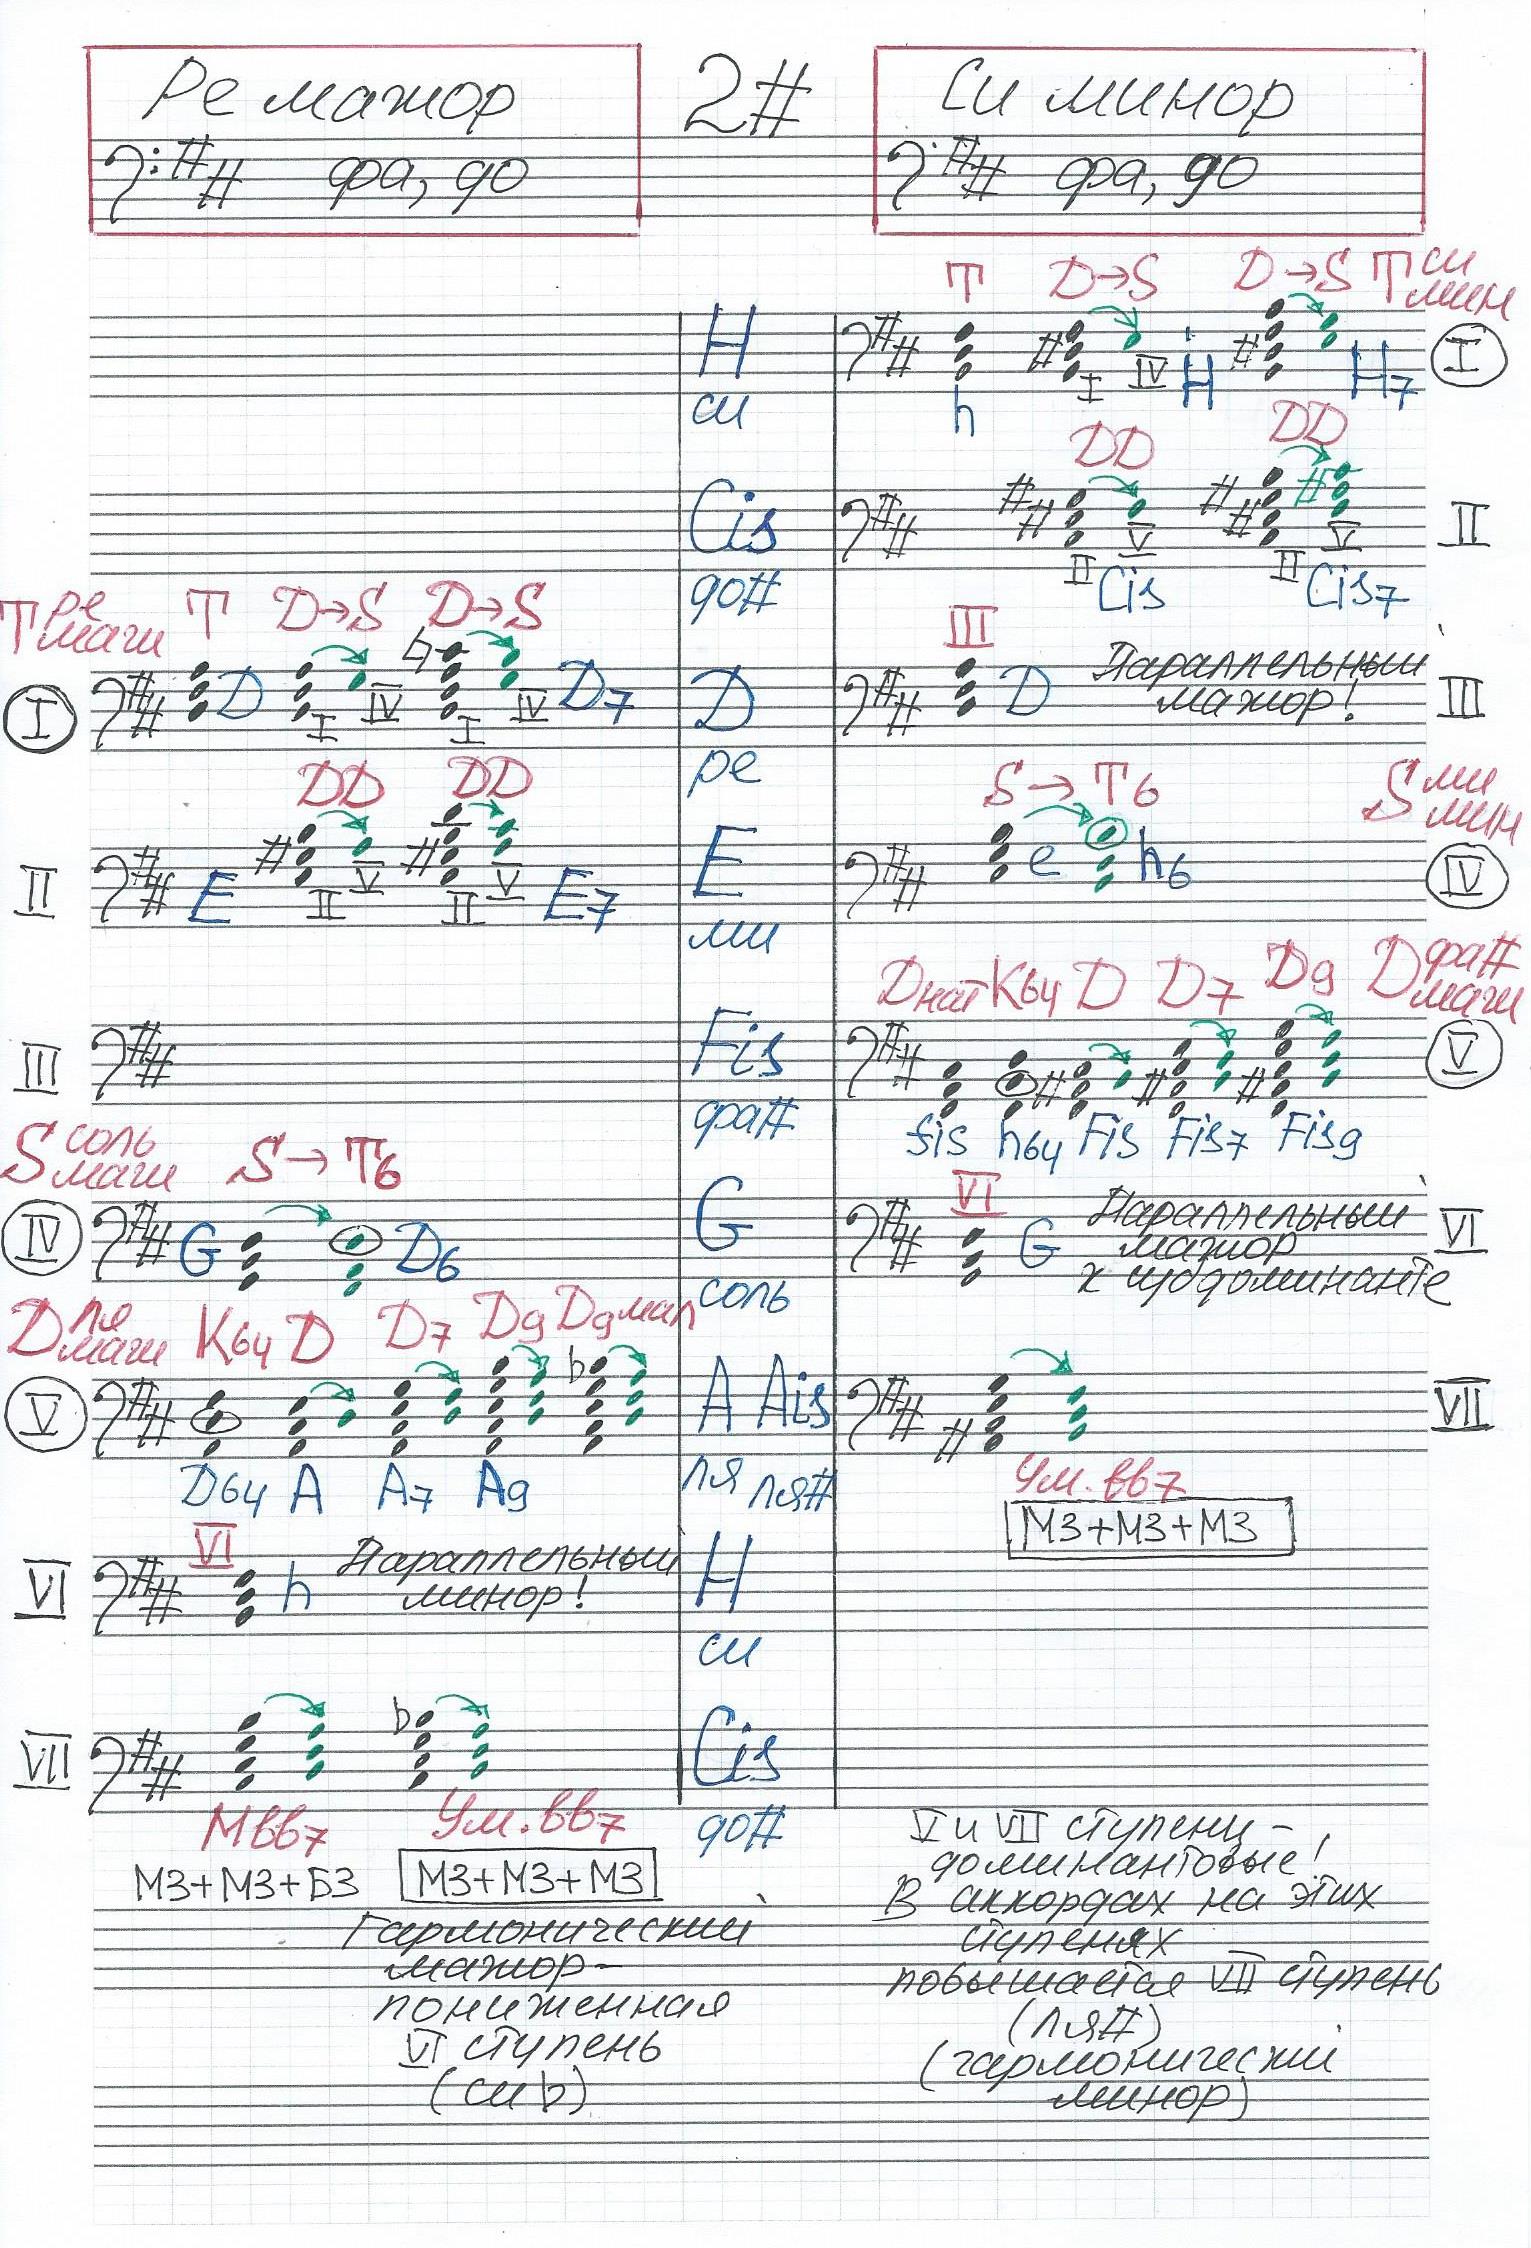 Ре мажор
2#
Си минор
## фа, до
## фа, до
T D→S D→S T си мин
H
си
h I IV H H7
I
DD DD
Cis
до#
II V Cis II V Cis7
II
T ре маж T D→S D→S
I
D I IV I IV D7
D
ре
III
D Параллельный
мажор!
III
DD DD
II
E II V II V E7
E
ми
S → T6 S ми мин
e h6
IV
III
Fis
фа#
Dнат K64 D D7 D9 D фа# маж
V
fis h64 Fis Fis7 Fis9
S соль маж S → T6
IV
G D6
G
соль
VI
G Параллельный
мажор
к субдоминанте
VI
D ля маж K64 D D7 D9 D9мал
V
D64 A A7 A9
A Ais
ля ля#
VII
Ум.вв7
М3+М3+М3
VI
VI
h Параллельный
минор!
H
си
VII
Мвв7 Ум.вв7
М3+М3+Б3 М3+М3+М3
Cis
до#
Гармонический
мажор-
пониженная
VI ступень
(си b)
V и VII ступени -
доминантовые!
В аккордах на этих
ступенях
повышается VII ступень
(ля#)
(гармонический
минор)